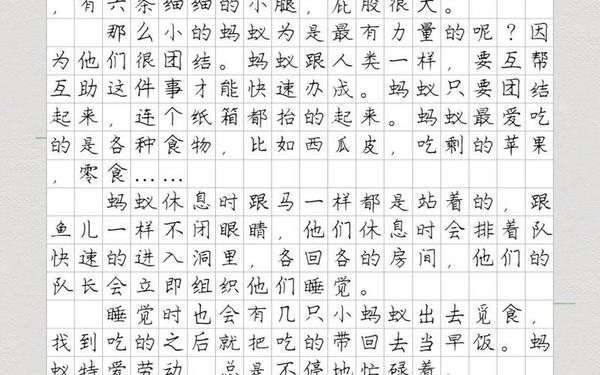 ,有六条细细的小腿,屁股很大。
那么小的蚂蚁为是最有力量的呢?因
为他们很团结。蚂蚁跟人类一样,要互帮
互助这件事才能快速办成。蚂蚁只要团结
起来,连个纸箱都抬的起来。蚂蚁最爱吃
的是各种食物,比如西瓜皮,吃剩的苹果
,零食……
蚂蚁休息时跟马一样都是站着的,跟
鱼儿一样不闭眼睛,他们休息时会排着队
快速的进入洞里,各回各的房间,他们的
队长会立即组织他们睡觉。
睡觉时也会有几只小蚂蚁出去觅食,
找到吃的之后就把吃的带回去当早饭。蚂
蚁特爱劳动,总是不停地忙碌着。